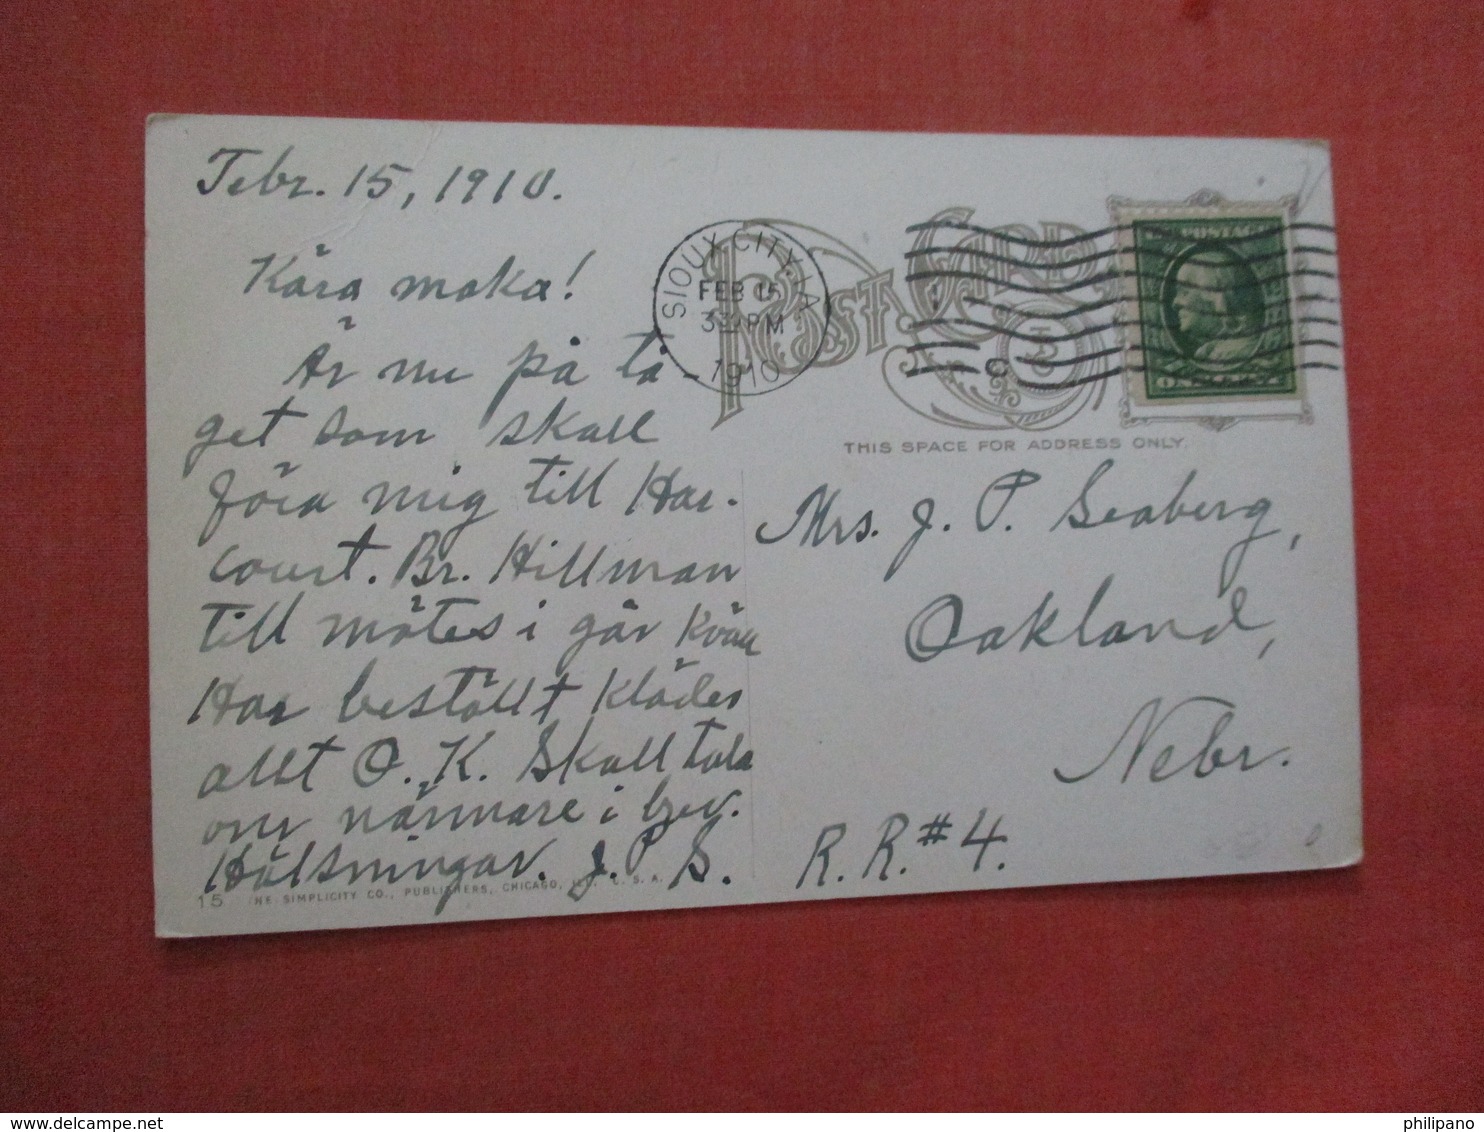 Febr. 15, 1910.
Kära maka!
Är nu på tå
get som skall
föra mig till Har-
court. Br. Hillman
till mötes i går kväll
Har beställt kläder
allt O. K. Skall tala
om närmare i brev.
Hälsningar. J. P. S.
15 THE SIMPLICITY CO., PUBLISHERS, CHICAGO, ILL., U. S. A.
SIOUX CITY, IA
FEB 15
PM
1910
POST CARD
U.S. POSTAGE
THIS SPACE FOR ADDRESS ONLY.
Mrs. J. P. Seaberg,
Oakland,
Nebr.
R. R. #4.
philipano